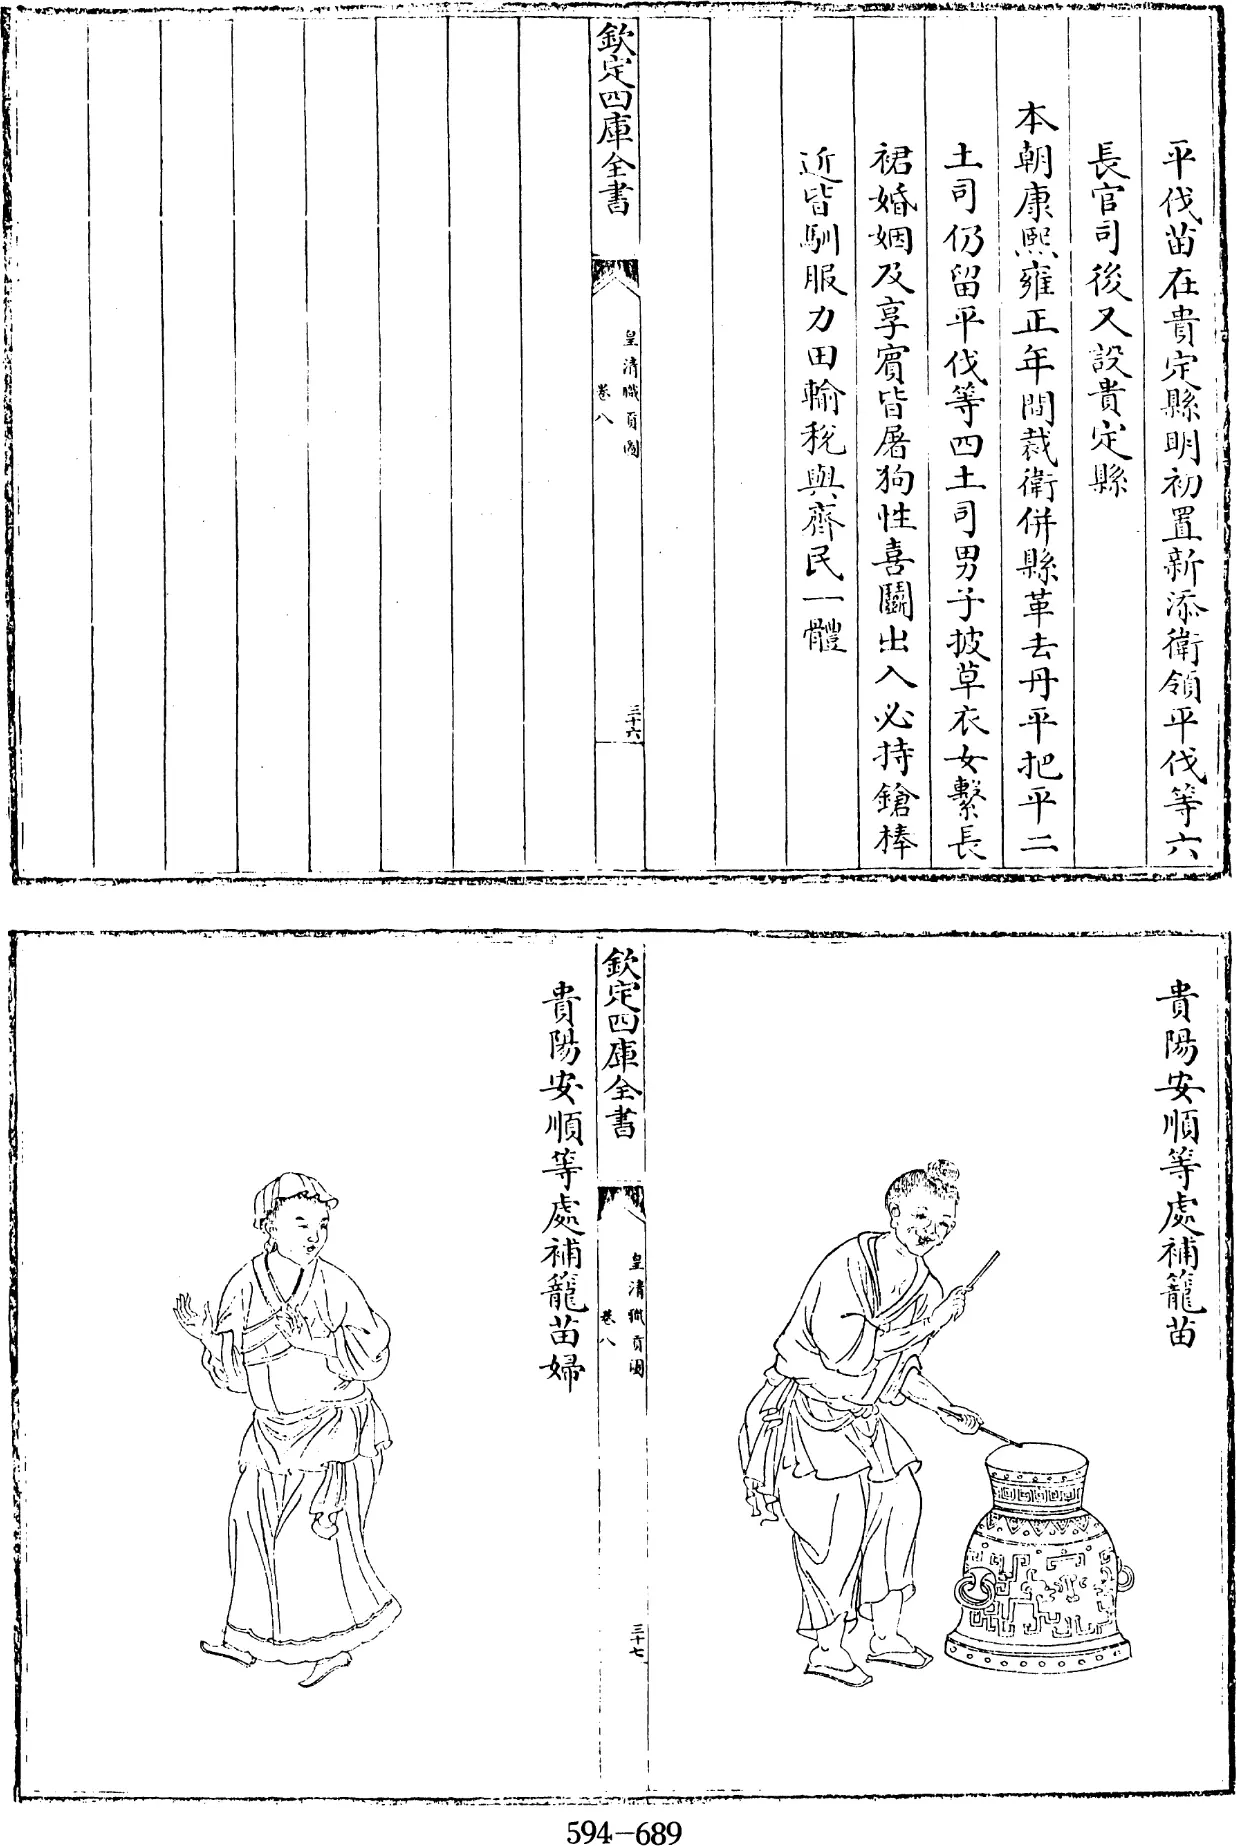 平伐苗在貴定縣明初置新添衛領平伐等六
長官司後又設貴定縣
本朝康熙雍正年間裁衛併縣革去丹平把平二
土司仍留平伐等四土司男子披草衣女繫長
裙婚姻及享賓皆屠狗性喜鬭出入必持鎗棒
近皆馴服力田輸稅與齊民一體
欽定四庫全書
皇清職貢圖
卷八
三十六
貴陽安順等處補籠苗
欽定四庫全書
皇清職貢圖
卷八
三十七
貴陽安順等處補籠苗婦
594-689